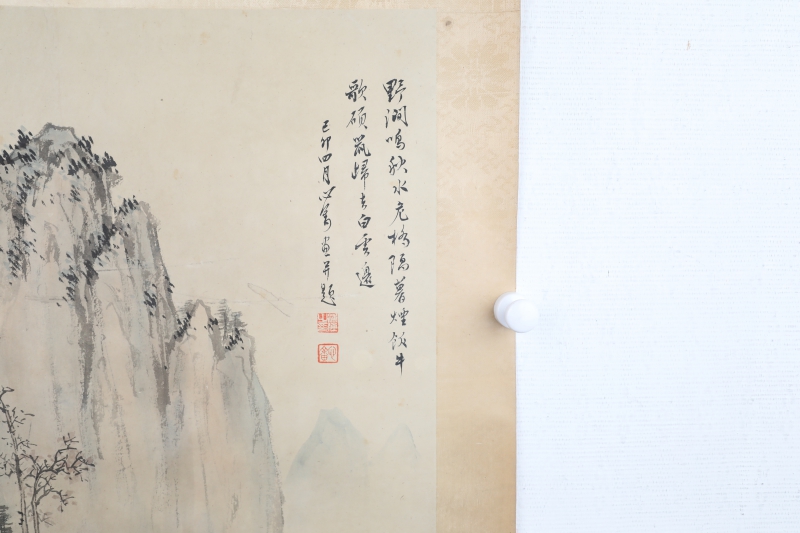 野澗鳴秋水危橋隔暮煙飯牛
歌碩鼠歸去白雲邊
己卯四月心畬畫并題